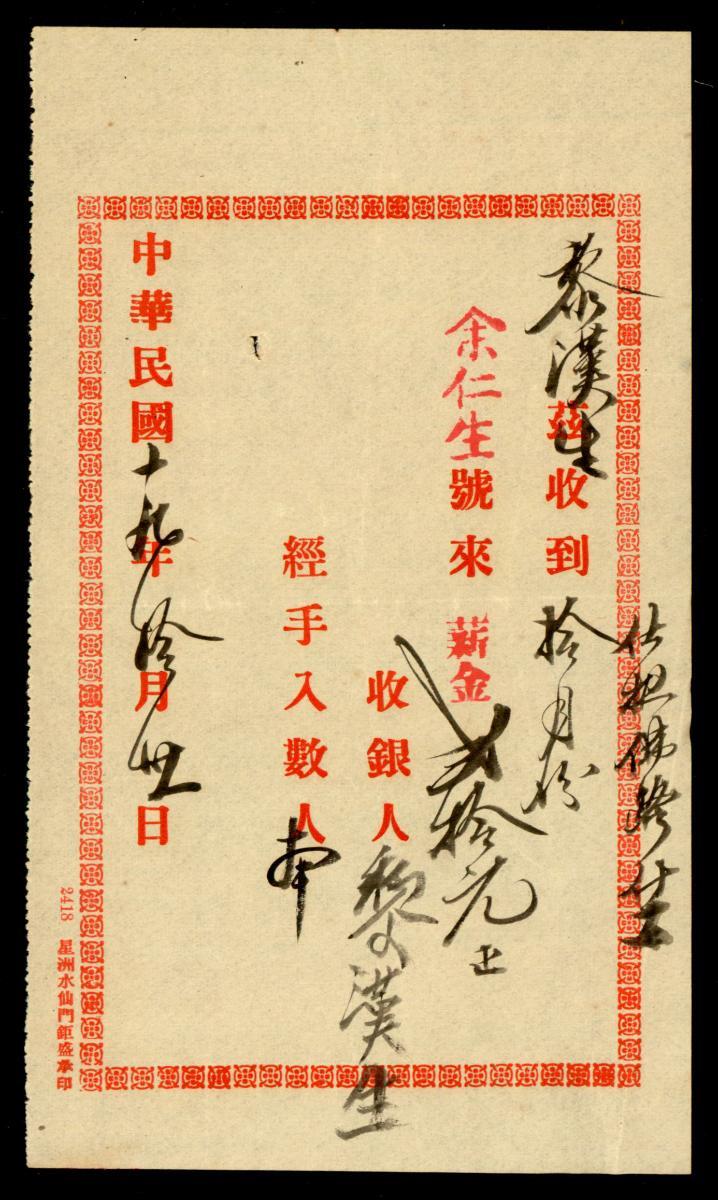 黎漢生茲收到拾月份
余仁生號來薪金弍拾元正
收銀人黎漢生
經手入數人
中華民國十九年拾月卅日
2418 星洲水仙門鉅盛承印